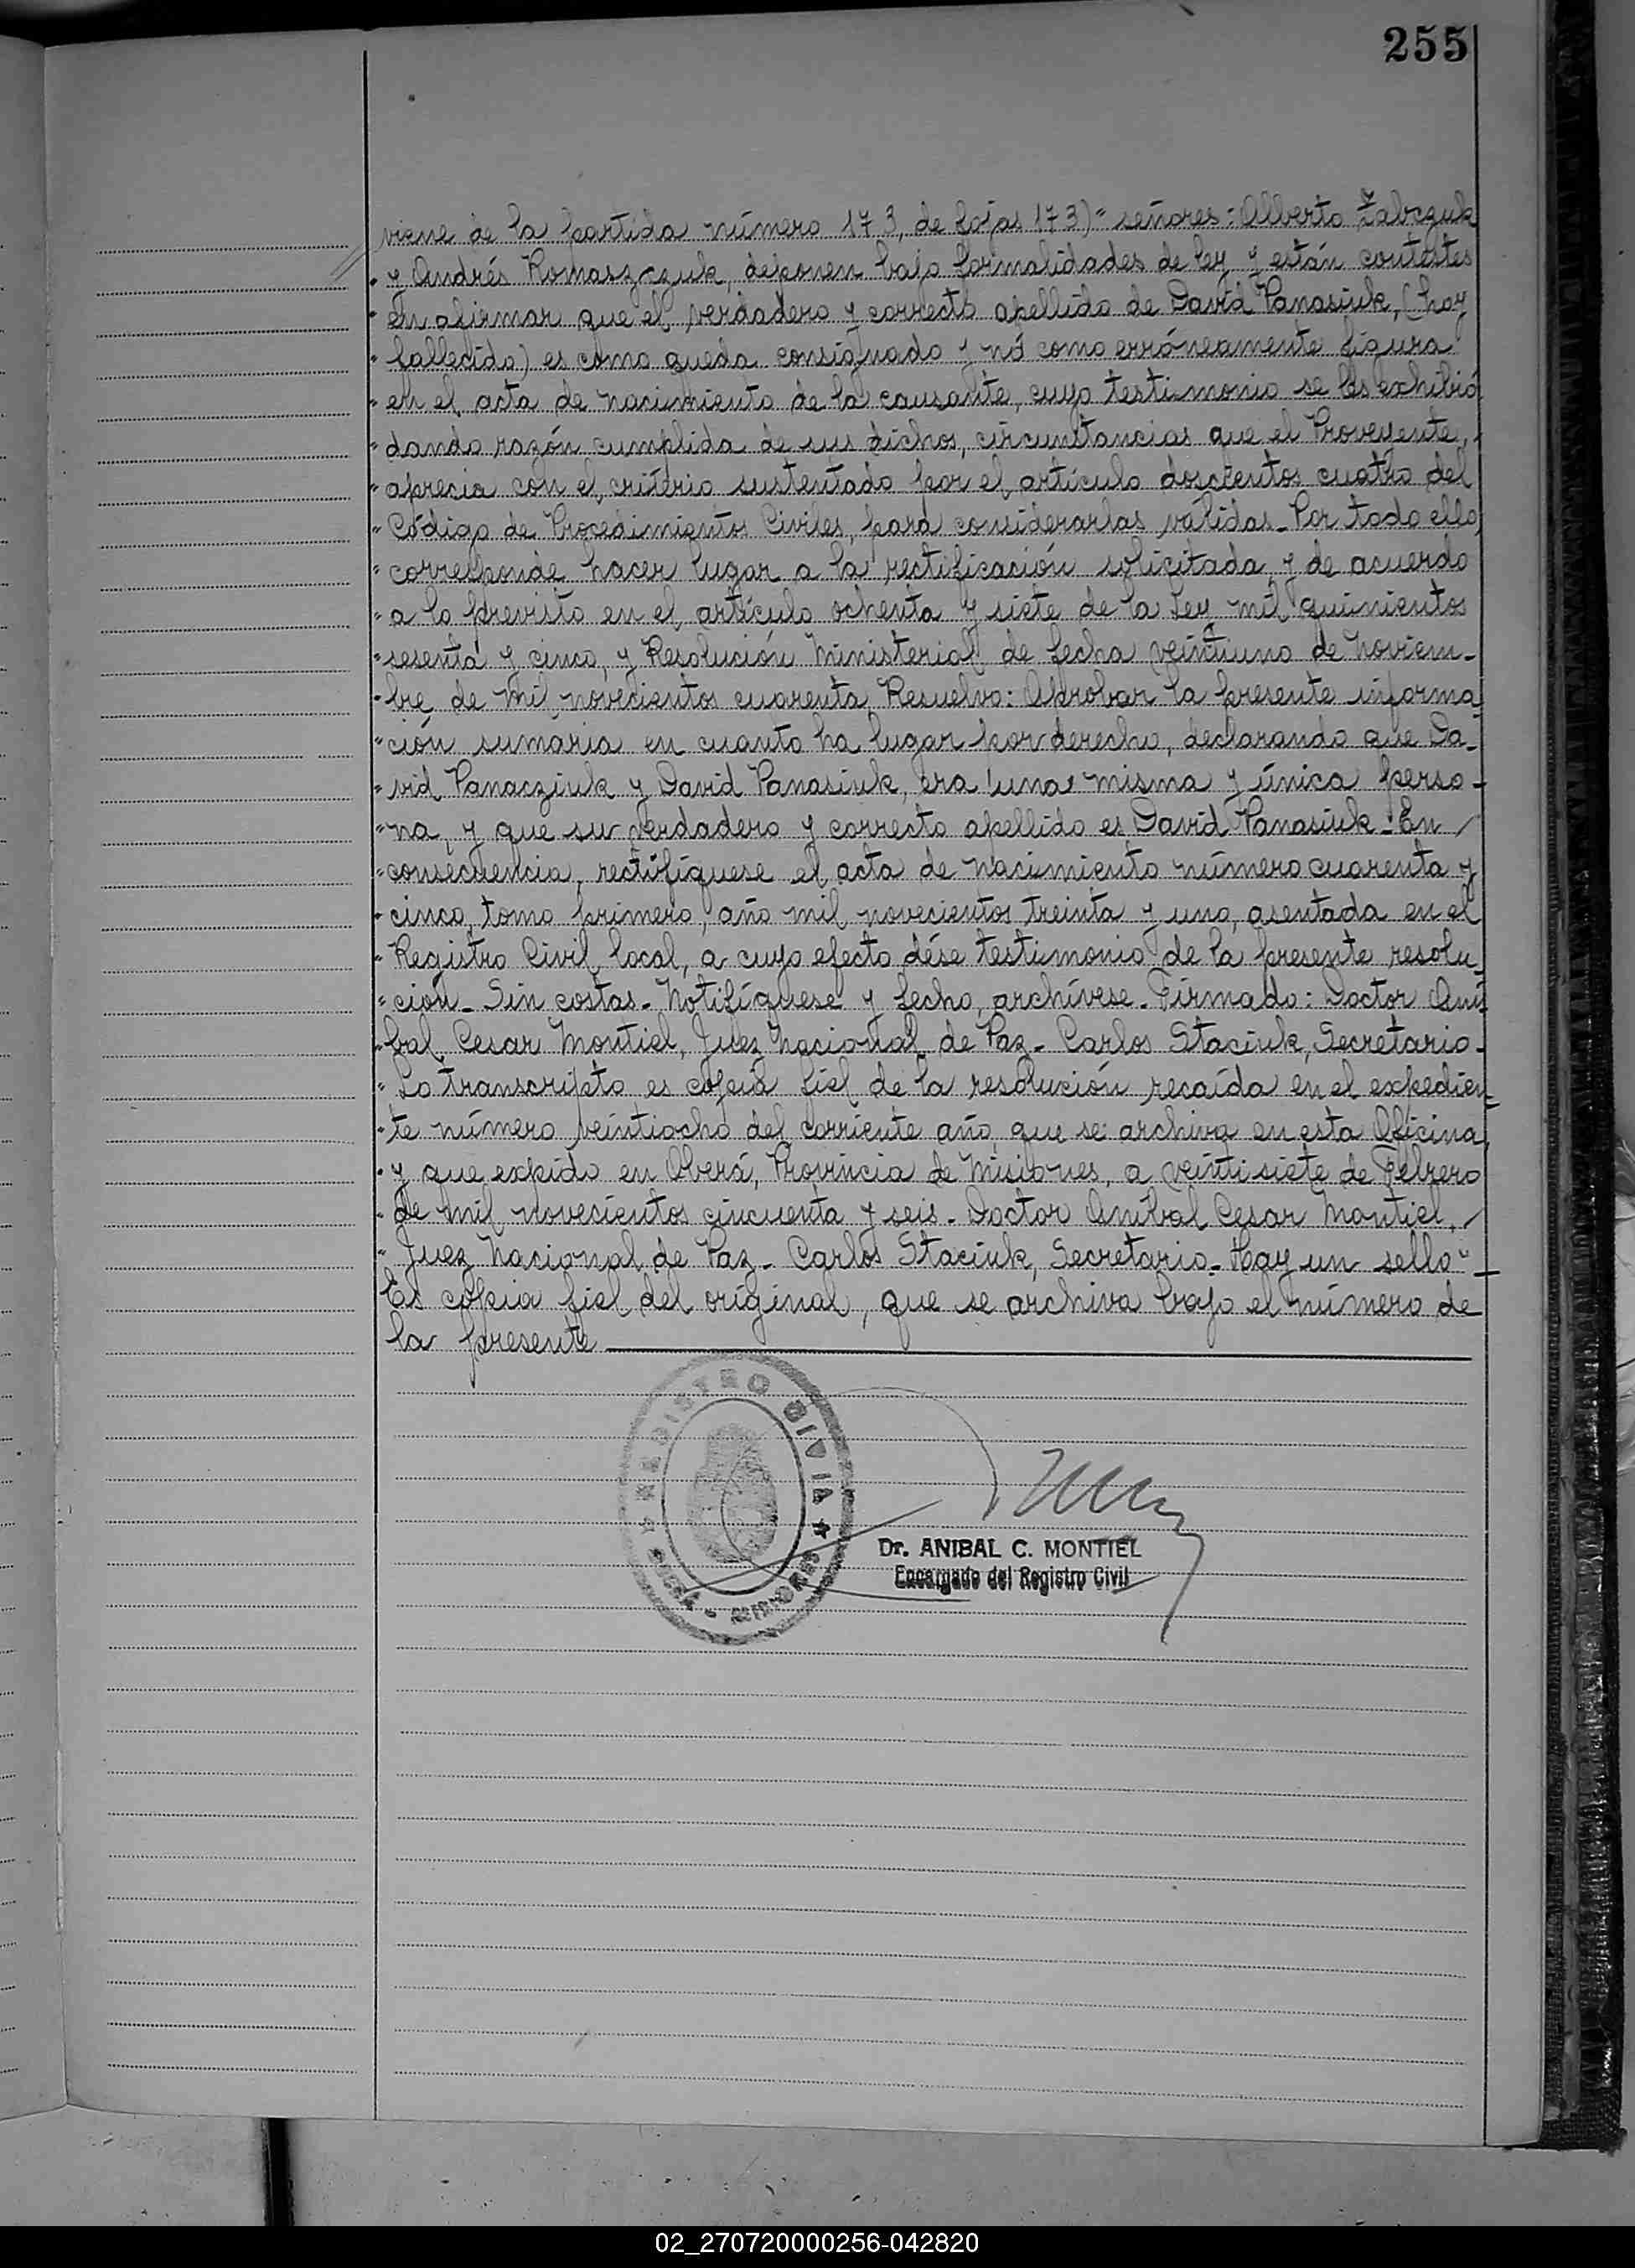 255
viene de la partida número 173, de fojas 173)" señores: Alberto Zabczuk
" y Andrés Romaszczuk, deponen bajo formalidades de ley, y están contestes
" en afirmar que el verdadero y correcto apellido de David Panasiuk, (hoy
" fallecido) es como queda consignado y nó como erróneamente figura
" en el acta de nacimiento de la causante, cuyo testimonio se les exhibió
" dando razón cumplida de sus dichos, circunstancias que el Proveyente,
" aprecia con el critério sustentado por el artículo doscientos cuatro del
" Código de Procedimientos Civiles, para considerarlas válidas_ Por todo ello,
" corresponde hacer lugar a la rectificación solicitada, y de acuerdo
" a lo previsto en el artículo ochenta y siete de la Ley mil quinientos
" sesenta y cinco, y Resolución Ministerial de fecha veintiuno de Noviem-
" bre de mil novecientos cuarenta, Resuelvo: Aprobar la presente informa-
" ción sumaria en cuanto ha lugar por derecho, declarando que Da-
" vid Panacziuk y David Panasiuk, era una misma y única perso-
" na, y que su verdadero y correcto apellido es David Panasiuk_ En
" consecuencia, rectifíquese el acta de nacimiento número cuarenta y
" cinco, tomo primero, año mil novecientos treinta y uno, asentada en el
" Registro Civil local, a cuyo efecto dése testimonio de la presente resolu-
" ción_ Sin costas_ Notifíquese y fecho, archívese_ Firmado: Doctor Aní-
" bal Cesar Montiel, Juez Nacional de Paz_ Carlos Staciuk, Secretario_
" Lo transcripto es copia fiel de la resolución recaída en el expedien-
" te número veintiocho del corriente año, que se archiva en esta Oficina,
" y que expido en Oberá, Provincia de Misiones, a veintisiete de Febrero
" de mil novecientos cincuenta y seis_ Doctor Aníbal Cesar Montiel,
" Juez Nacional de Paz_ Carlos Staciuk, Secretario_ Hay un sello"_
Es copia fiel del original, que se archiva bajo el número de
la presente
REGISTRO CIVIL
MISIONES
Dr. ANIBAL C. MONTIEL
Encargado del Registro Civil
02_270720000256-042820